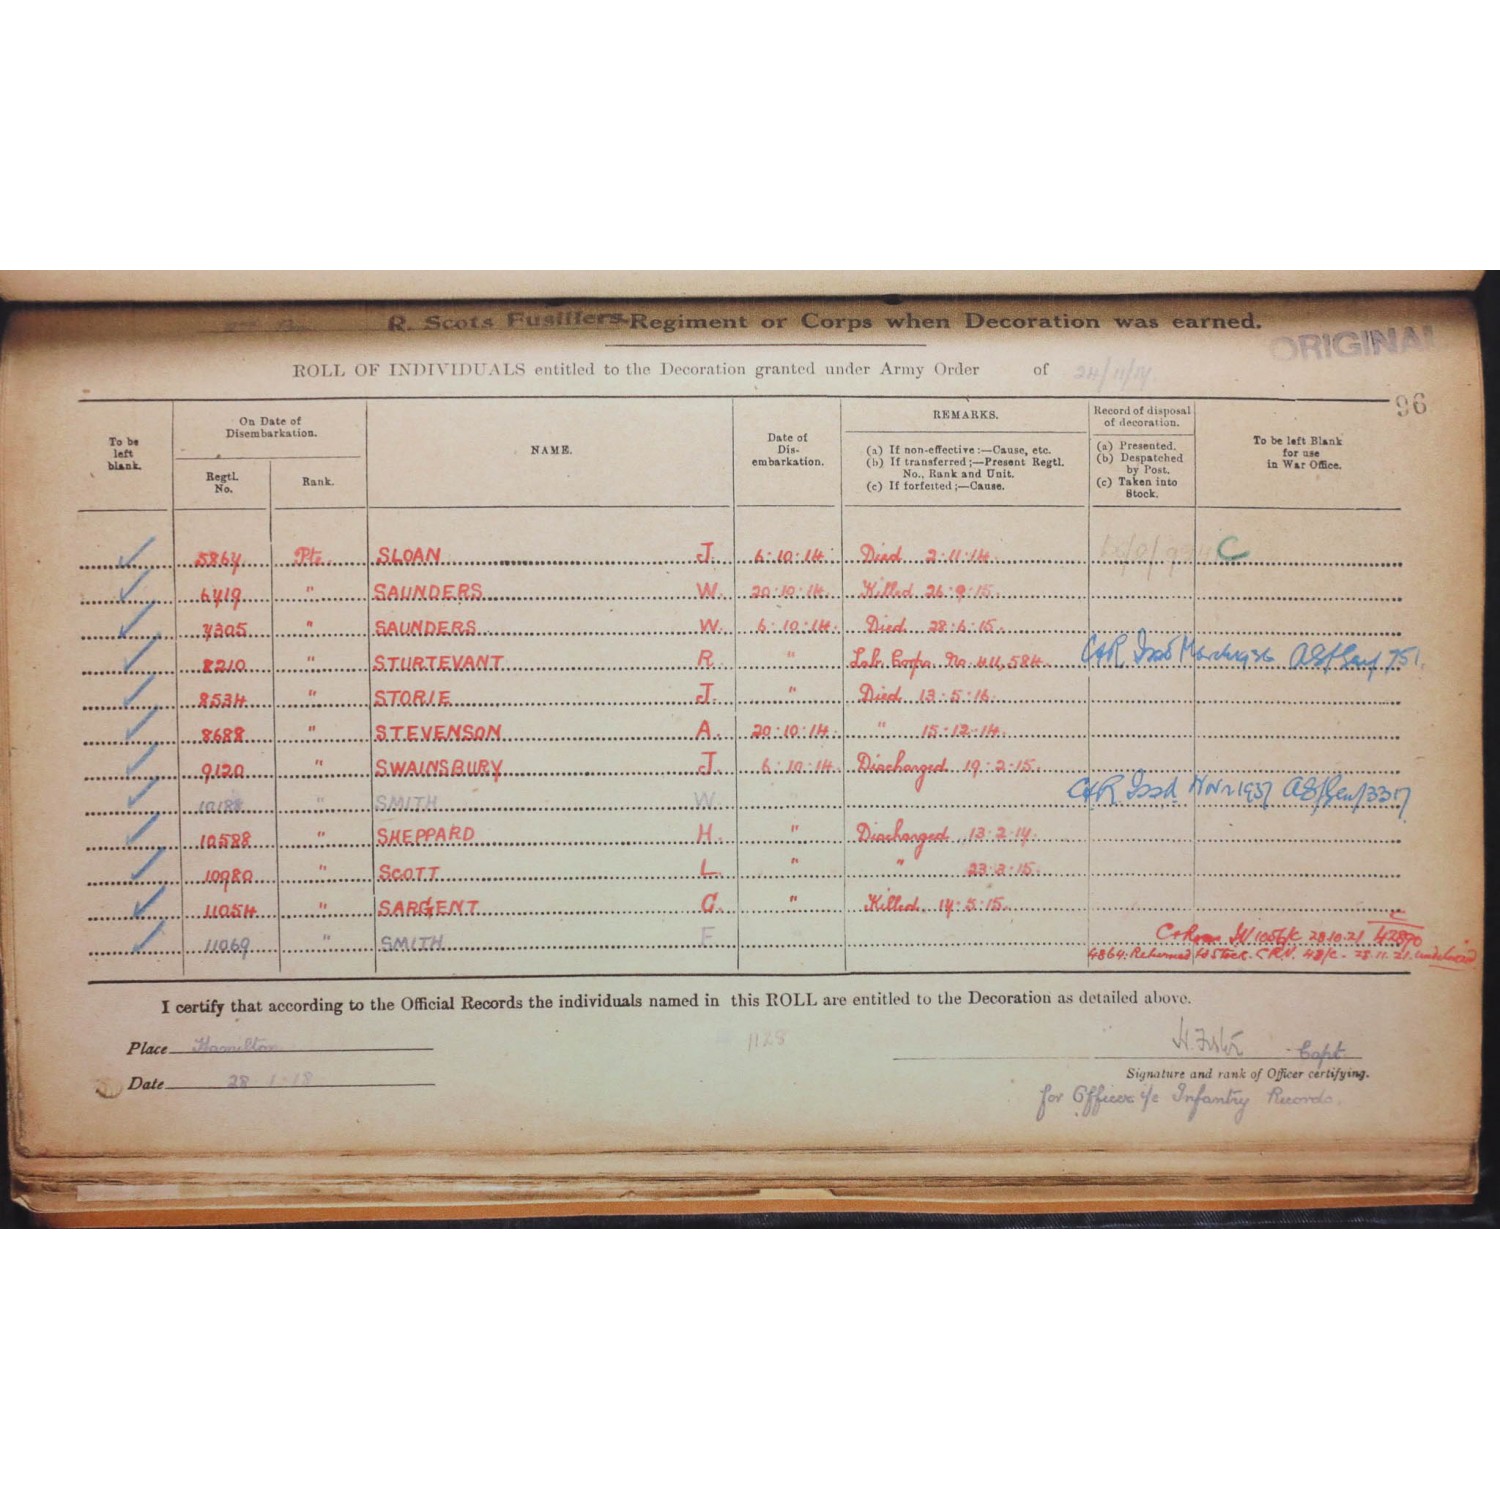 R. Scots Fusiliers Regiment or Corps when Decoration was earned.
ORIGINAL
ROLL OF INDIVIDUALS entitled to the Decoration granted under Army Order of 24/11/17.
96
To be left blank.
On Date of Disembarkation.
Regtl. No.
Rank.
NAME.
Date of Dis-embarkation.
REMARKS.
(a) If non-effective:—Cause, etc.
(b) If transferred;—Present Regtl. No., Rank and Unit.
(c) If forfeited;—Cause.
Record of disposal of decoration.
(a) Presented.
(b) Despatched by Post.
(c) Taken into Stock.
To be left Blank for use in War Office.
5864 Pte. SLOAN J. 6.10.14. Died 2.11.14. C
6719 " SAUNDERS W. 20.10.14. Killed 26.9.15.
7305 " SAUNDERS W. 6.10.14. Died 28.6.15.
8210 " STURTEVANT R. " Lab. Corps. No. 411,584. C&R Issd March 1936 751.
8534 " STORIE J. " Died 13.5.16.
8688 " STEVENSON A. 20.10.14. " 15.12.14.
9120 " SWAINSBURY J. 6.10.14. Discharged 19.2.15.
10188 " SMITH W. C&R Issd. Nov 1937
10588 " SHEPPARD H. " Discharged 13.2.17.
10980 " SCOTT L. " " 23.3.15.
11054 " SARGENT G. " Killed 17.5.15.
11069 " SMITH F 28.10.21
4864: Returned to Stock. 28.11.21.
I certify that according to the Official Records the individuals named in this ROLL are entitled to the Decoration as detailed above.
Place Hamilton
1128
Capt.
Date 28.1.18
Signature and rank of Officer certifying.
for Officer i/c Infantry Records.